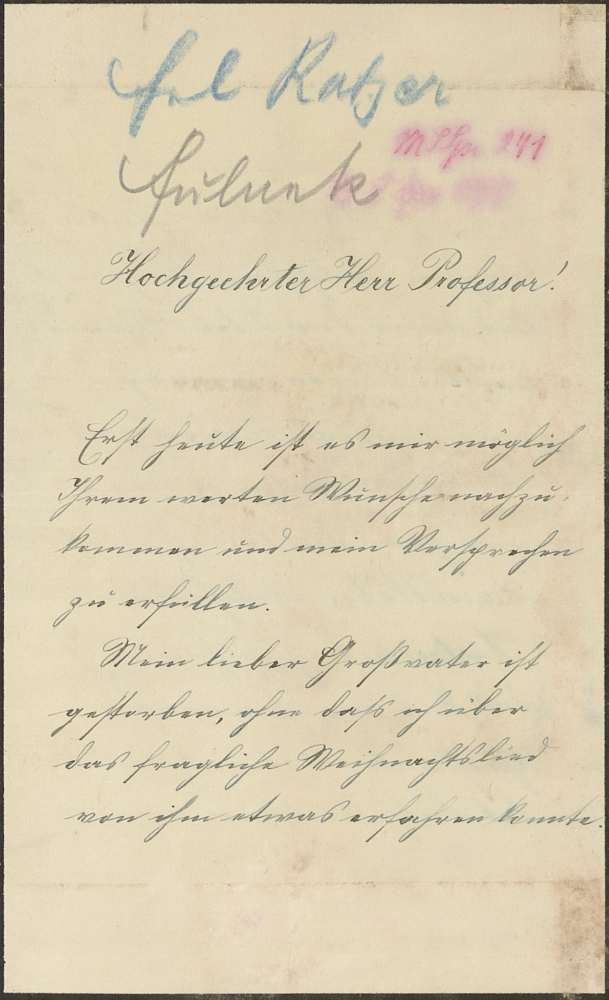 Frl Katzer
Fulnek
Hochgeehrter Herr Professor!
Erst heute ist es mir möglich
Ihrem werten Wunsche nachzu-
kommen und mein Versprechen
zu erfüllen.
Mein lieber Großvater ist
gestorben, ohne daß ich über
das fragliche Weihnachtslied
von ihm etwas erfahren konnte.